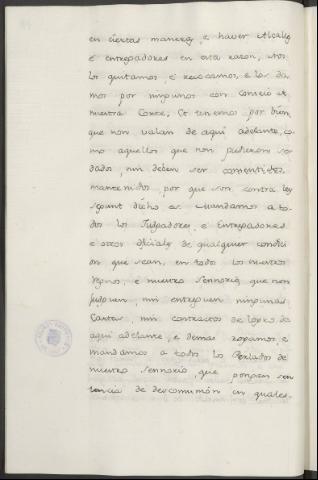 en ciertas maneras, e haver Alcaldes
é entregadores en esta razon, Nos
los quitamos, é revocamos, e los da-
mos por ningunos con Conseio de
nuestra Corte; Et tenemos por bien
que non valan de aqui adelante, co-
mo aquellos que non pudieron ser
dados, nin deben ser consentidos,
mantenidos, por que son contra ley
segunt dicho es. Mandamos a to-
dos los Judgadores, e Entregadores
e otros oficiales de qualquier condici-
on que sean, en todo los nuestros
Regnos, é nuestro Sennorio, que non
judguen, nin entreguen ningunas
Cartas, nin contractos de logros de
aqui adelante, e demas rogamos, e
mandamos a todos los Perlados de
nuestro Sennorio, que pongan sen-
tencia de descomunión en quales-